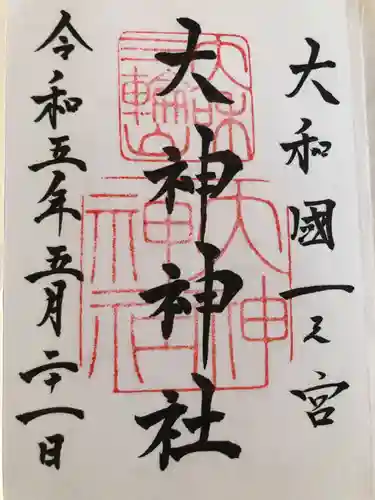 大和國一之宮
大神神社
令和五年五月二十一日
大神
神社
三輪